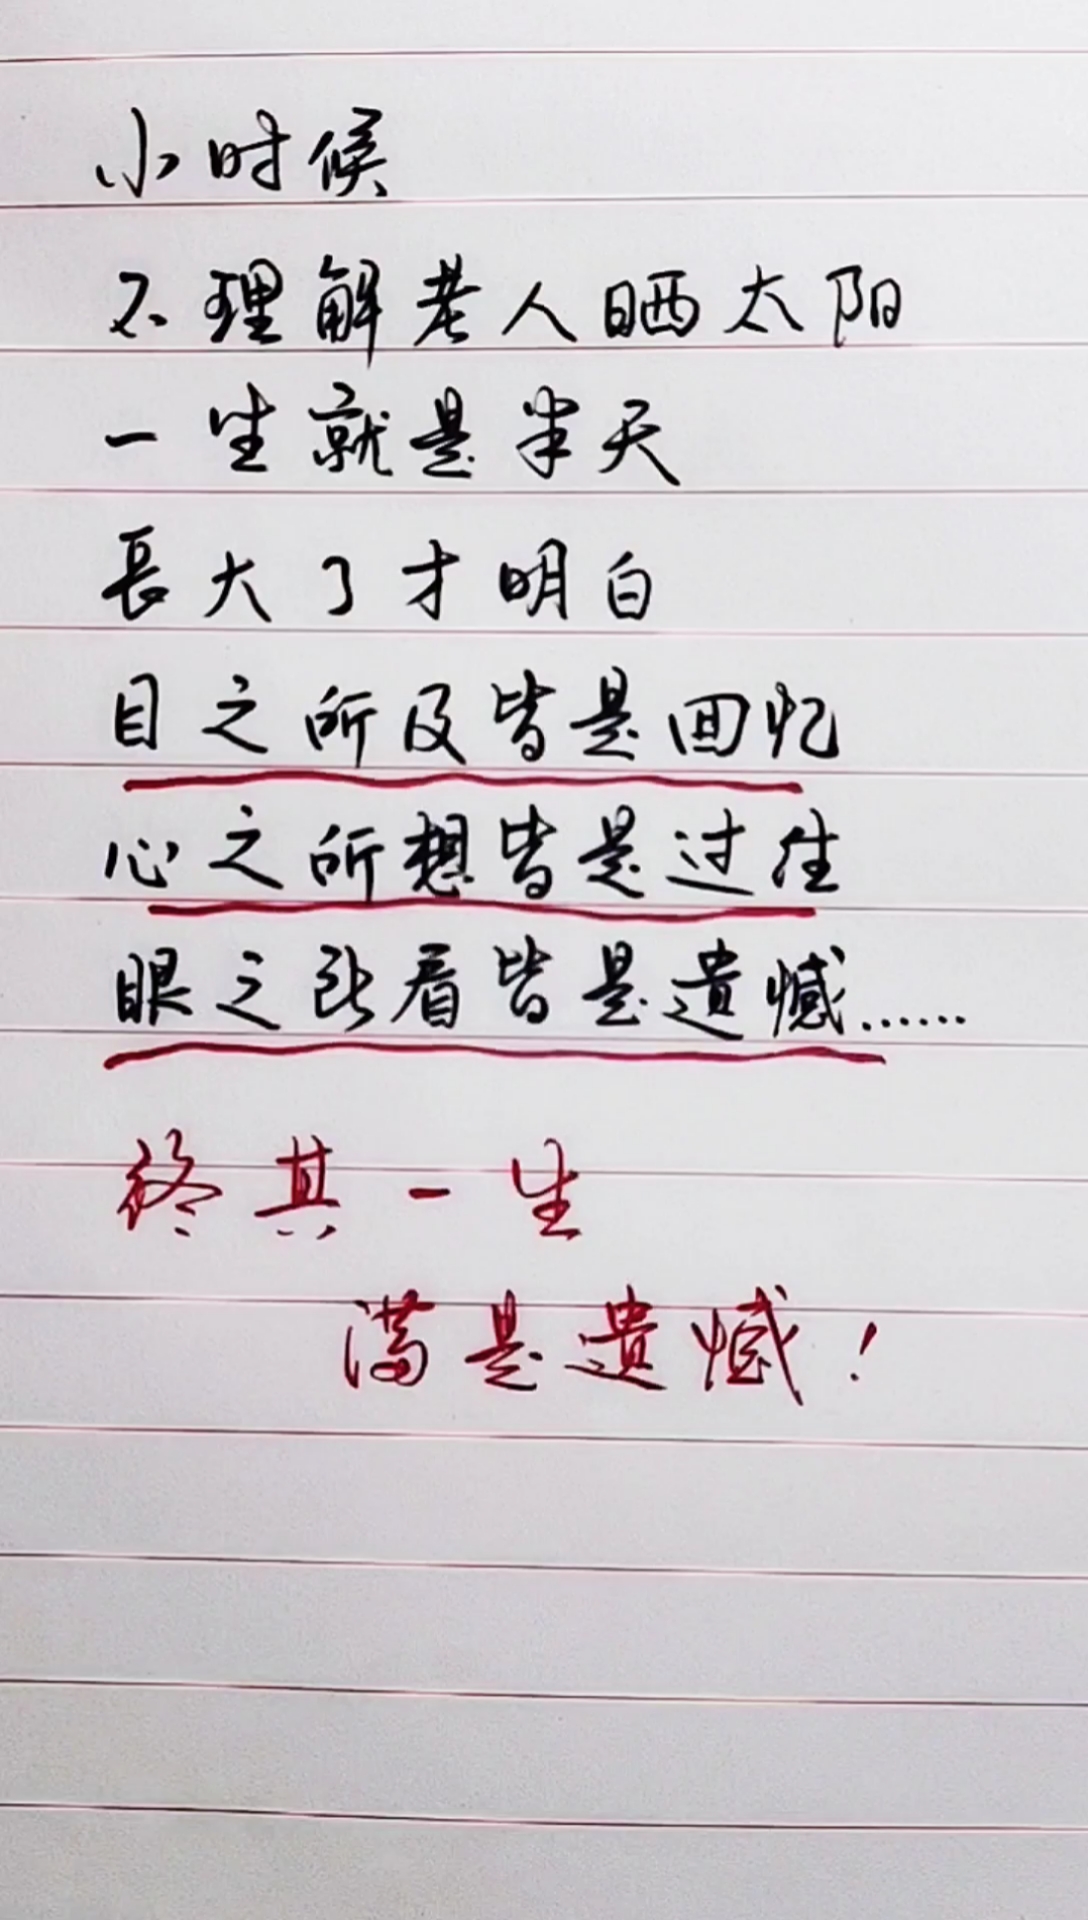 小时候
不理解老人晒太阳
一生就是半天
長大了才明白
目之所及皆是回忆
心之所想皆是过往
眼之所看皆是遗憾……
终其一生
满是遗憾！